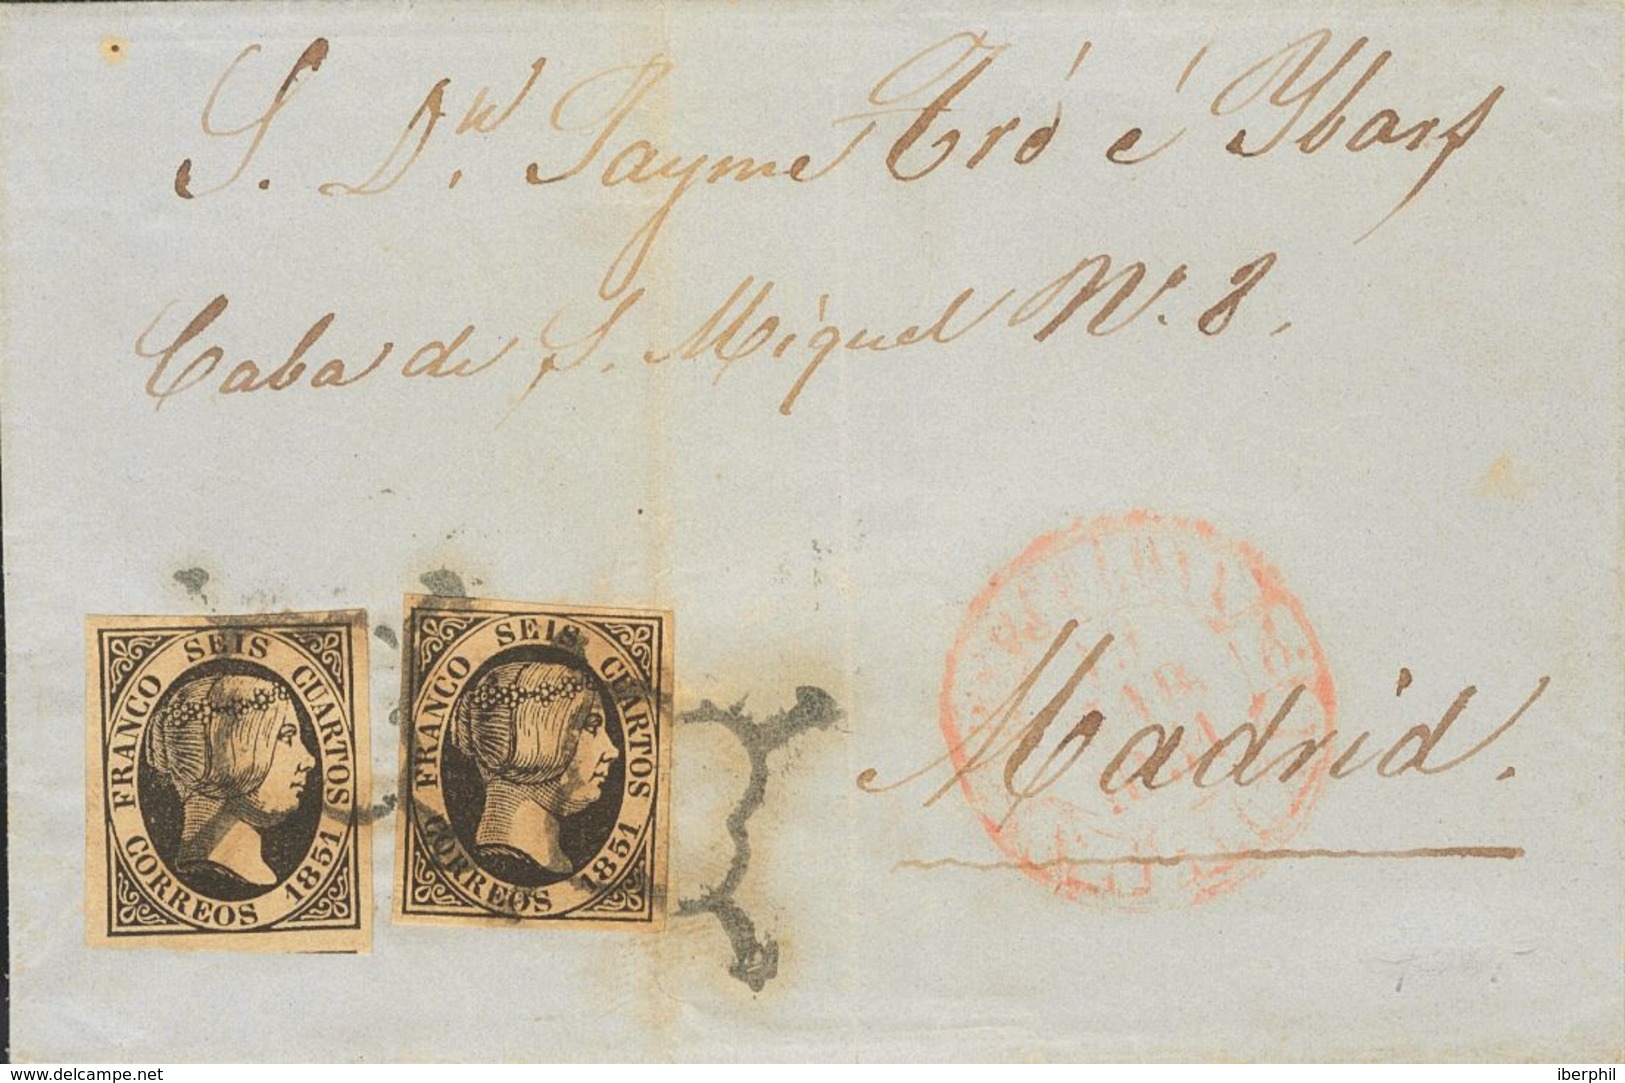 S. Dn Jayme Tró é Ybarz
Caba de S. Miguel Nº. 8.
Madrid.
FRANCO SEIS CUARTOS
CORREOS 1851
FRANCO SEIS CUARTOS
CORREOS 1851
www.delcampe.net
iberphil